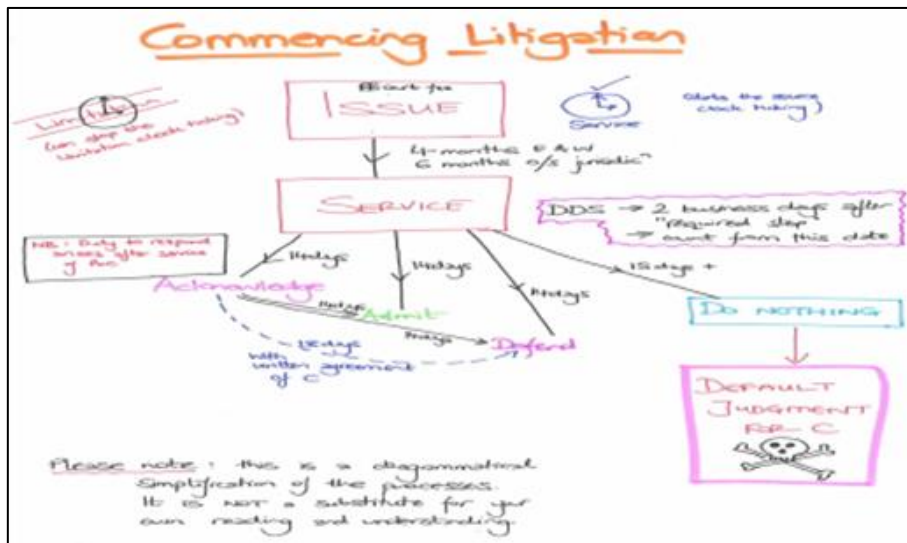 Commencing Litigation
court fee
ISSUE
Limitation
(can stop the
limitation clock ticking)
Service
(starts the service
clock ticking)
4 months E & W
6 months o/s jurisdicn
SERVICE
DDS → 2 business days after
"required step"
→ count from this date
NB: Duty to respond
arises after service
of PoC
14 days
14 days
14 days
15 days +
Acknowledge
14 days
Admit
14 days
Defend
DO NOTHING
28 days
with
written agreement
of C
DEFAULT
JUDGMENT
FOR C
Please note: this is a diagrammatical
simplification of the processes.
It is NOT a substitute for your
own reading and understanding.